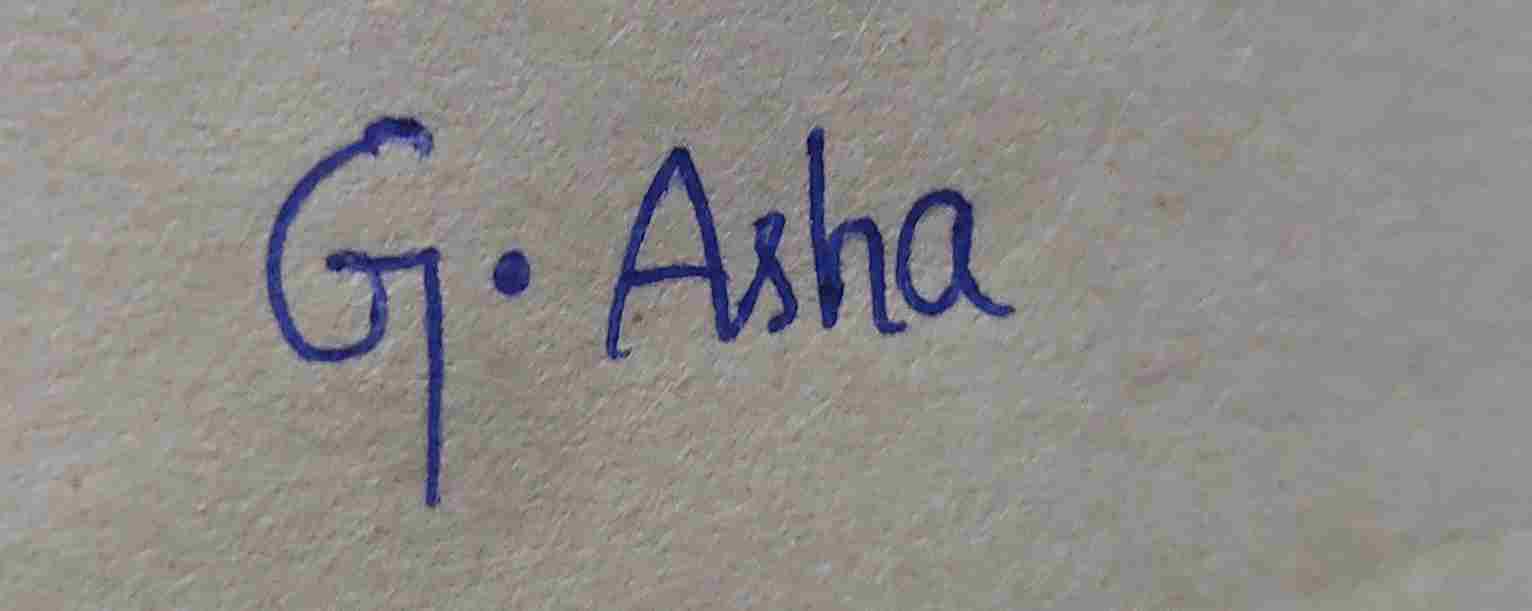 G. Asha